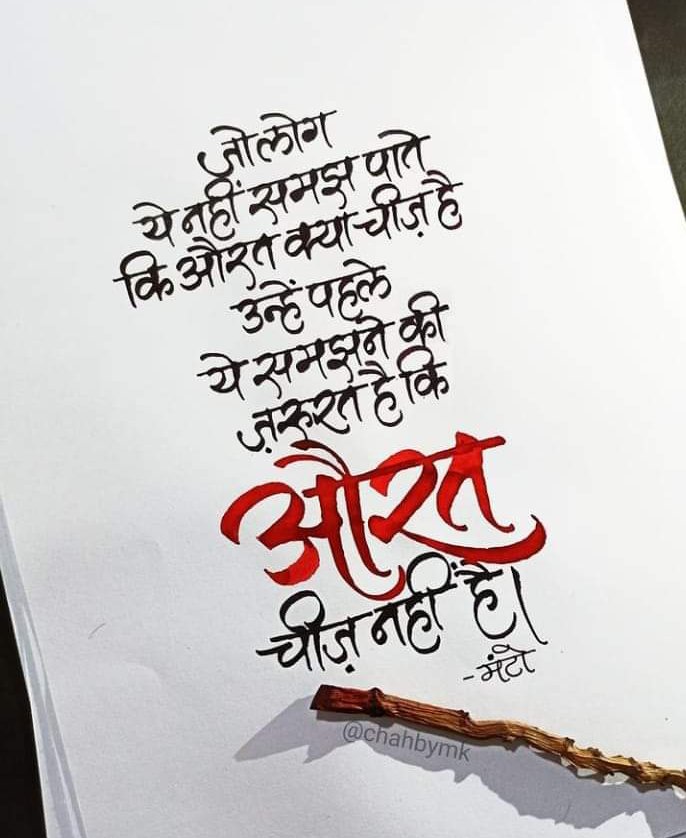 जो लोग
ये नहीं समझ पाते
कि औरत क्या चीज़ है
उन्हें पहले
ये समझने की
ज़रूरत है कि
औरत
चीज़ नहीं है।
-मंटो
@chahbymk